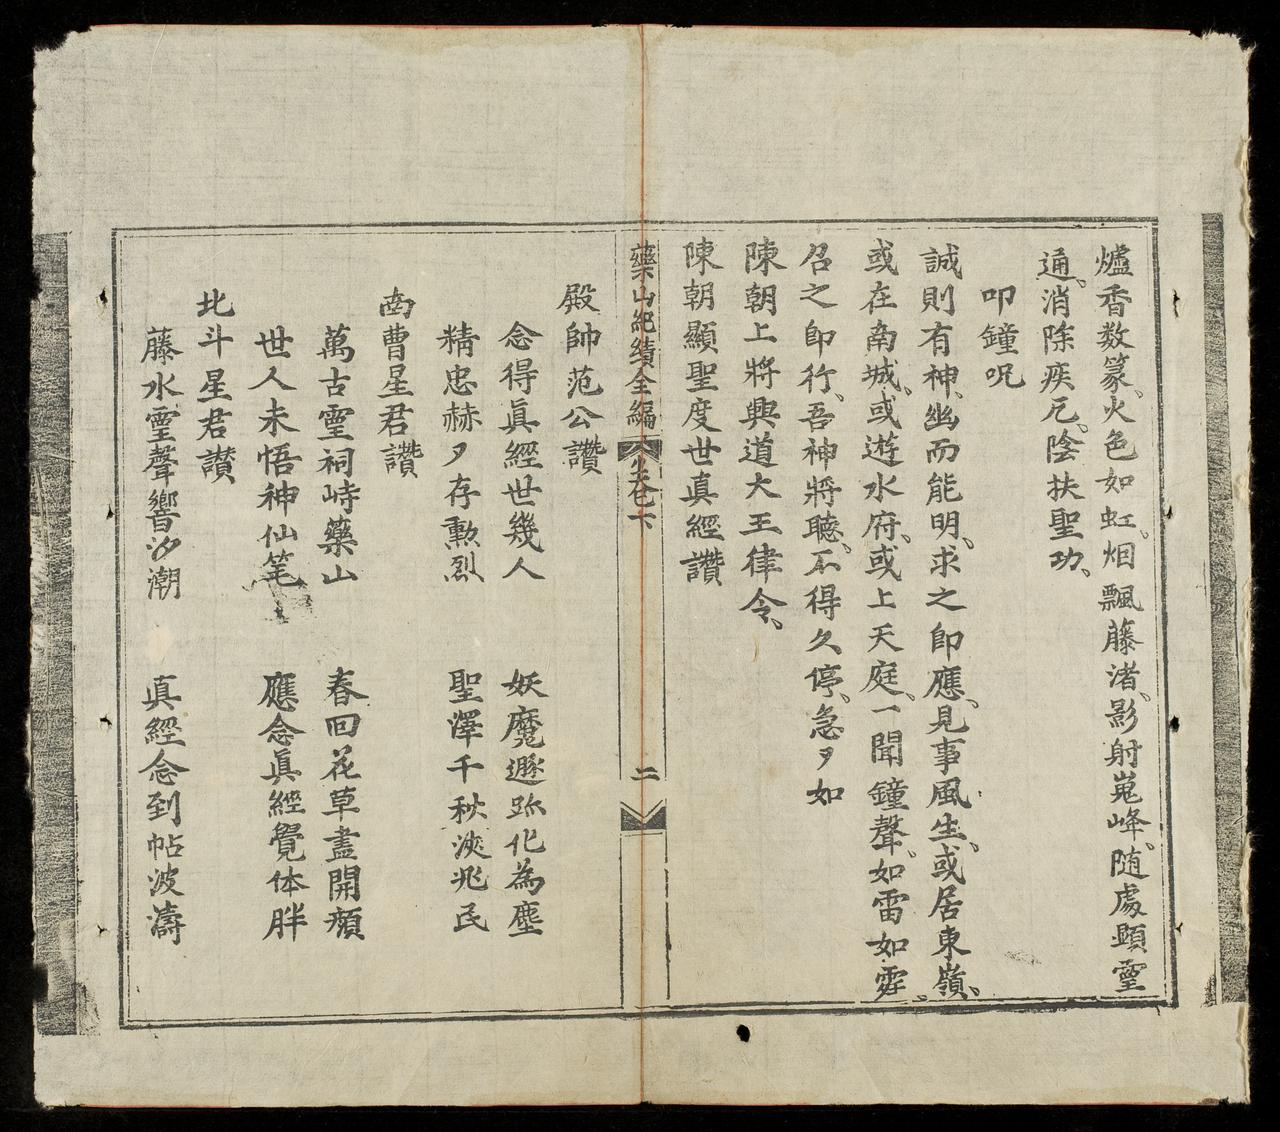 爐香数篆、火色如虹、烟飄藤渚、影射嵬峰、随處顕𤫊
通、消除疾厄、陰扶聖功、
叩鐘呪
誠則有神、幽而能明、求之即應、見事風生、或居東嶺、
或在南城、或遊水府、或上天庭、一聞鐘聲、如雷如霹、
召之即行、吾神將聴、不得久停、急々如
陳朝上將興道大王律令、
陳朝顯聖度世真經讚
藥山紀績全編 卷下 二
殿帥范公讚
念得真經世幾人 妖魔遯跡化為塵
精忠赫々存勲烈 聖澤千秋浹兆民
南曹星君讚
萬古𤫊祠峙藥山 春回花草盡開顏
世人未悟神仙笔 應念真經覺体胖
北斗星君讃
藤水𤫊聲響汐潮 真經念到帖波濤